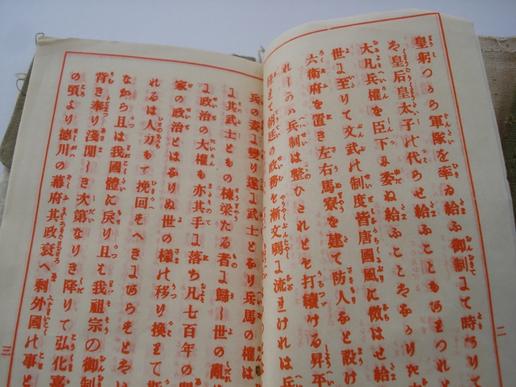 皇躬つから軍隊を率ゐ給ふ御制にて時あり
を皇后皇太子の代らせ給ふこともありつれ
大凡兵權を臣下に委ね給ふことはなかり
世に至りて文武の制度皆唐國風に傚はせ給
六衛府を置き左右馬寮を建て防人なと設け
れしかは兵制は整ひたれとも打續ける昇平
て朝廷の政務も漸文弱に流れけれは兵
二
兵の姿に變り遂に武士となり兵馬の權は
に其武士ともの棟梁たる者に歸し世の亂
に政治の大權も亦其手に落ち凡七百年の間
家の政治とはなりぬ世の樣の移り換りて斯
れるは人力もて挽回すへきにあらすとはいひ
なから且は我國體に戻り且は我祖宗の御制
背き奉り淺間しき次第なりき降りて弘化嘉
の頃より徳川の幕府其政衰へ剩外國の事と
三